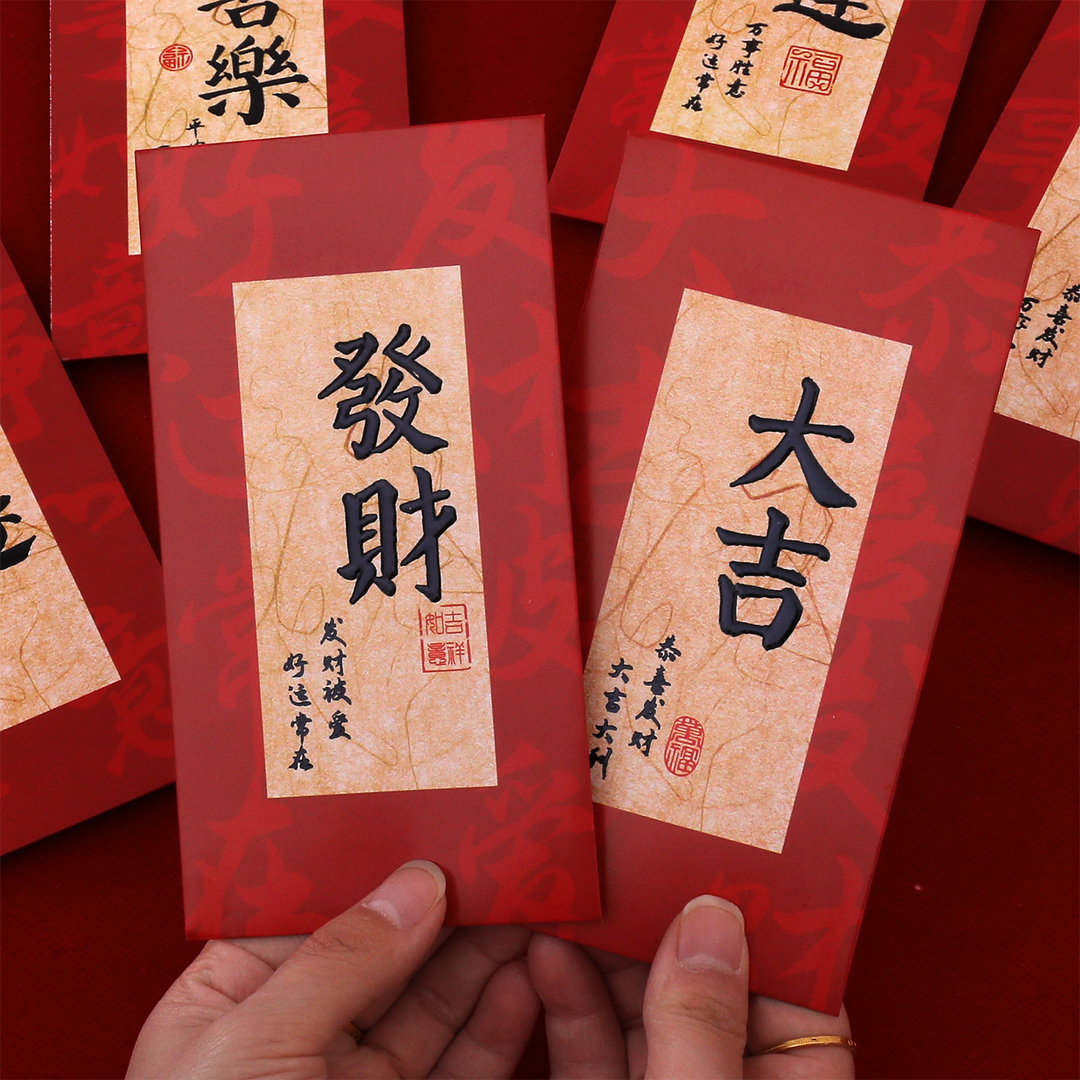 發財
发财被爱
好运常在
吉祥如意
大吉
恭喜发财
大吉大利
萬福
喜樂
平
福
万事胜意
好运常在
福
恭喜发财
万事